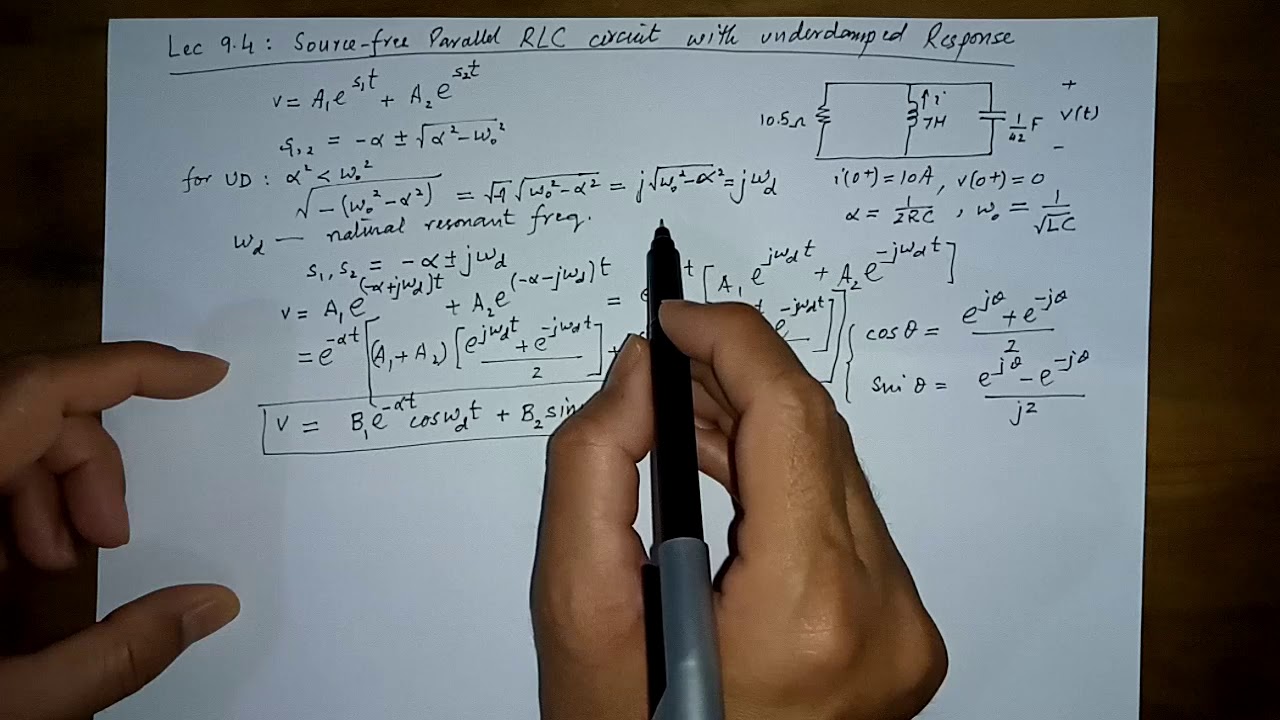 Lec 9.4: Source-free Parallel RLC circuit with underdamped Response
v = A₁e^(s₁t) + A₂e^(s₂t)
s₁,₂ = -α ± √(α²-ω₀²)
for UD: α² < ω₀²
√(-(ω₀²-α²)) = √-1 √(ω₀²-α²) = j√(ω₀²-α²) = jω_d
ω_d — natural resonant freq.
s₁, s₂ = -α ± jω_d
v = A₁e^((-α+jω_d)t) + A₂e^((-α-jω_d)t) = e t [A₁e^(jω_d t) + A₂e^(-jω_d t)]
= e^(-αt) [(A₁+A₂) [(e^(jω_d t) + e^(-jω_d t))/2] + e^(-jω_d t) ]]
v = B₁e^(-αt) cosω_d t + B₂ sin
10.5Ω
↑i
7H
1/42 F
+
v(t)
-
i(0+) = 10A, v(0+) = 0
α = 1/2RC, ω₀ = 1/√LC
cosθ = (e^(jθ) + e^(-jθ))/2
sinθ = (e^(jθ) - e^(-jθ))/j2